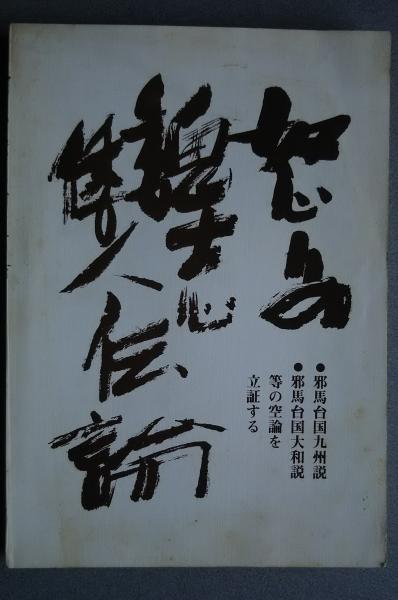 魏志
倭人伝論
●邪馬台国九州説
●邪馬台国大和説
等の空論を
立証する